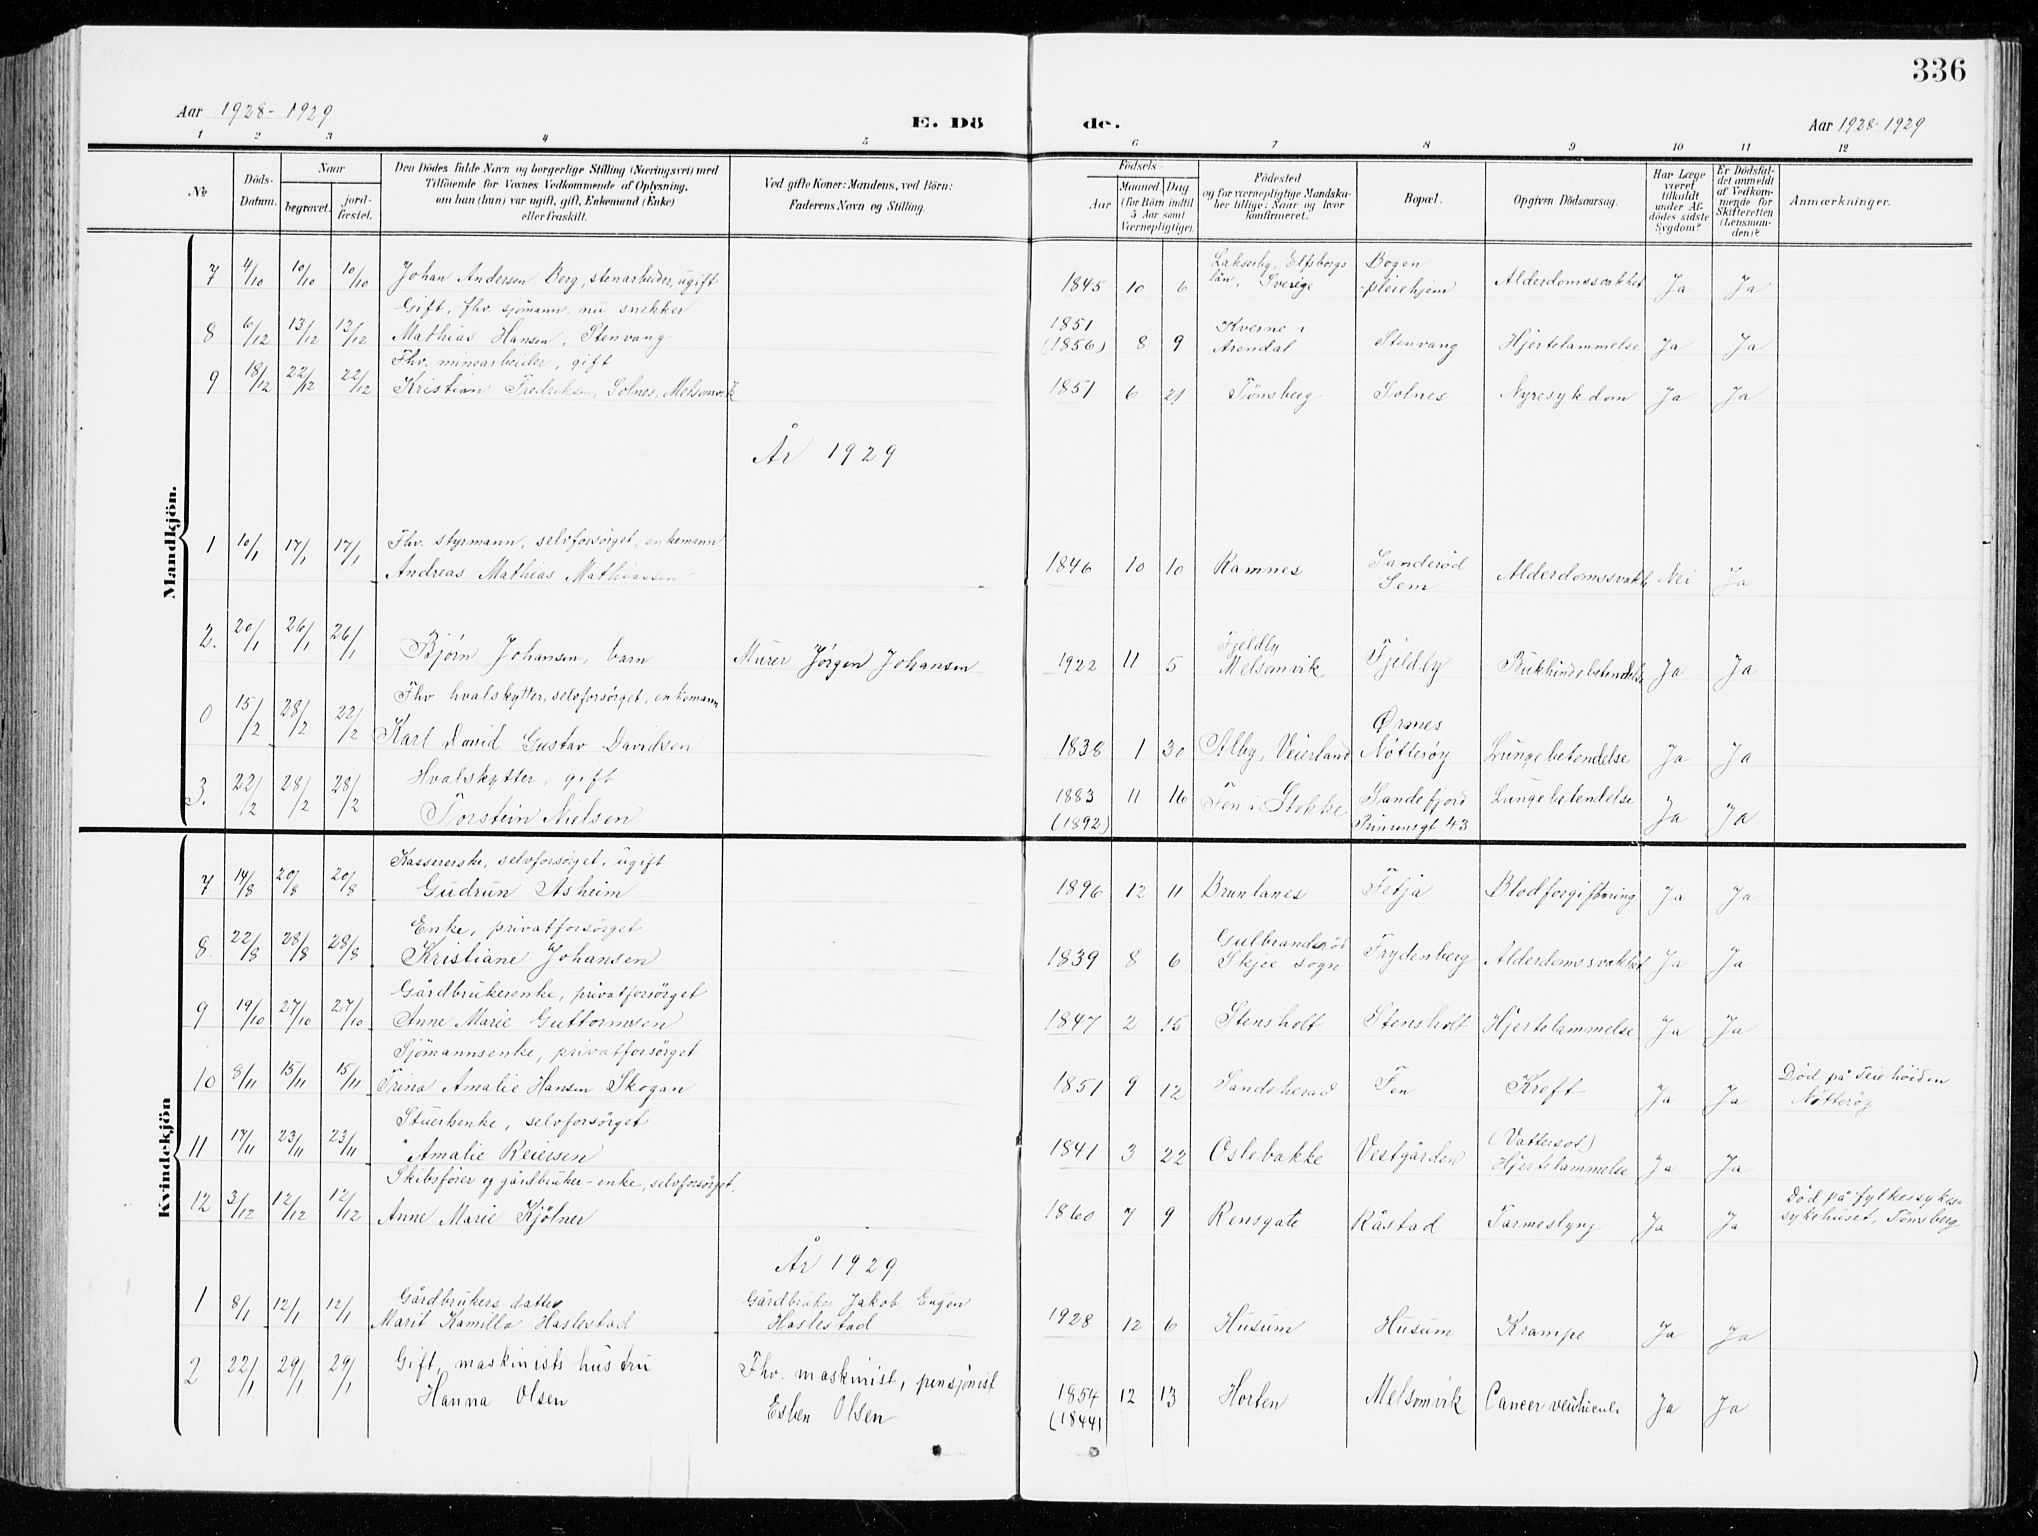 336
Aar 1928-1929
E. Dö de.
Aar 1928-1929
1 2 3 4 5 6 7 8 9 10 11 12
№
Döds-Datum.
Naar
begravet.
jord-fæstet.
Den Dödes fulde Navn og borgerlige Stilling (Næringsvei) med
Tilföiende for Voxnes Vedkommende af Oplysning,
om han (hun) var ugift, gift, Enkemand (Enke)
eller fraskilt.
Ved gifte Koner: Mandens, ved Börn:
Faderens Navn og Stilling.
Födsels
Aar
Maaned Dag
(for Börn indtil
5 Aar samt
Værnepligtige).
Födested
og for værnepligtige Mandska-
ber tillige: Naar og hvor
konfirmeret.
Bopæl.
Opgiven Dödsaarsag.
Har Læge
været
tilkaldt
under Af-
dödes sidste
Sygdom?
Er Dödsfal-
det anmeldt
af Vedkom-
mende for
Skifteretten
(Lensman-
den)?
Anmærkninger.
Mandkjön.
7 4/10 10/10 10/10 Johan Andersen Berg, stenarbeider, ugift 1845 10 6 Lakserby, Elfsborgs län, Sverige Bogen pleiehjem Alderdomssvakhet Ja Ja
Gift, fhv. sjömann, nu snekker
8 6/12 13/12 13/12 Mathias Hansen, Stenvang 1851 (1856) 8 9 Kverne i Arendal Stenvang Hjertelammelse Ja Ja
Fhv. minearbeider, gift
9 18/12 22/12 22/12 Kristian Fredriksen, Solnes, Melsomvik 1851 6 21 Tønsberg Solnes Nyresykdom Ja Ja
År 1929
Fhv. styrmann, selvforsörget, enkemann
1 10/1 17/1 17/1 Andreas Mathias Mathiassen 1846 10 10 Ramnes Sanderöd Sem Alderdomssvakh. Nei Ja
2. 20/1 26/1 26/1 Bjørn Johansen, barn Murer Jørgen Johansen 1922 11 5 Fjeldby Melsomvik Fjeldby Bukhindebetendelse Ja Ja
Fhv hvalskytter, selvforsørget, enkemann
0 15/2 28/2 22/2 Karl David Gustav Davidsen 1838 1 30 Alby, Veierland Ørsnes Nötterøy Lungebetendelse Ja Ja
Hvalskytter, gift
3. 22/2 28/2 28/2 Torstein Nielsen 1883 (1892) 11 16 Fen i Stokke Sandefjord Prinsensgt 43 Lungebetendelse Ja Ja
Kvindekjön
Kassererske, selvforsørget, ugift
7. 14/8 20/8 20/8 Gudrun Asheim 1896 12 11 Brunlanes Fetja Blodforgiftning Ja Ja
Enke, privatforsørget
8. 22/8 28/8 28/8 Kristiane Johansen 1839 8 6 Gulbrandsröd Skjee sogn Frydenberg Alderdomssvakhet Ja Ja
Gårdbrukerenke, privatforsörget
9 19/10 27/10 27/10 Anne Marie Guttormsen 1847 2 15 Stensholt Stensholt Hjertelammelse Ja Ja
Sjömannsenke, privatforsørget
10 8/11 15/11 15/11 Trina Amalie Hansen Skogan 1851 9 12 Sandeherad Fen Kreft Ja Ja Död på Teiehöiden Nötteröy
Stuertenke, selvforsørget
11 17/11 23/11 23/11 Amalie Reiersen 1841 3 22 Oslebakke Vestgården (Vattersot) Hjertelammelse Ja Ja
Skibsfører og gårdbruker-enke, selvforsørget.
12 3/12 12/12 12/12 Anne Marie Kjölner 1860 7 9 Rensgate Råstad Tarmeslyng Ja Ja Död på fylkessykes- sykehuset, Tönsberg
År 1929
1 8/1 12/1 12/1 Gårdbrukers datter Marit Kamilla Haslestad Gårdbruker Jakob Eugen Haslestad 1928 12 6 Husum Husum Krampe Ja Ja
2 22/1 29/1 29/1 Gift, maskinists hustru Hanna Olsen Fhv. maskinist, pensjonist Esben Olsen 1854 (1844) 12 13 Horten Melsomvik Cancer ventriculi Ja Ja